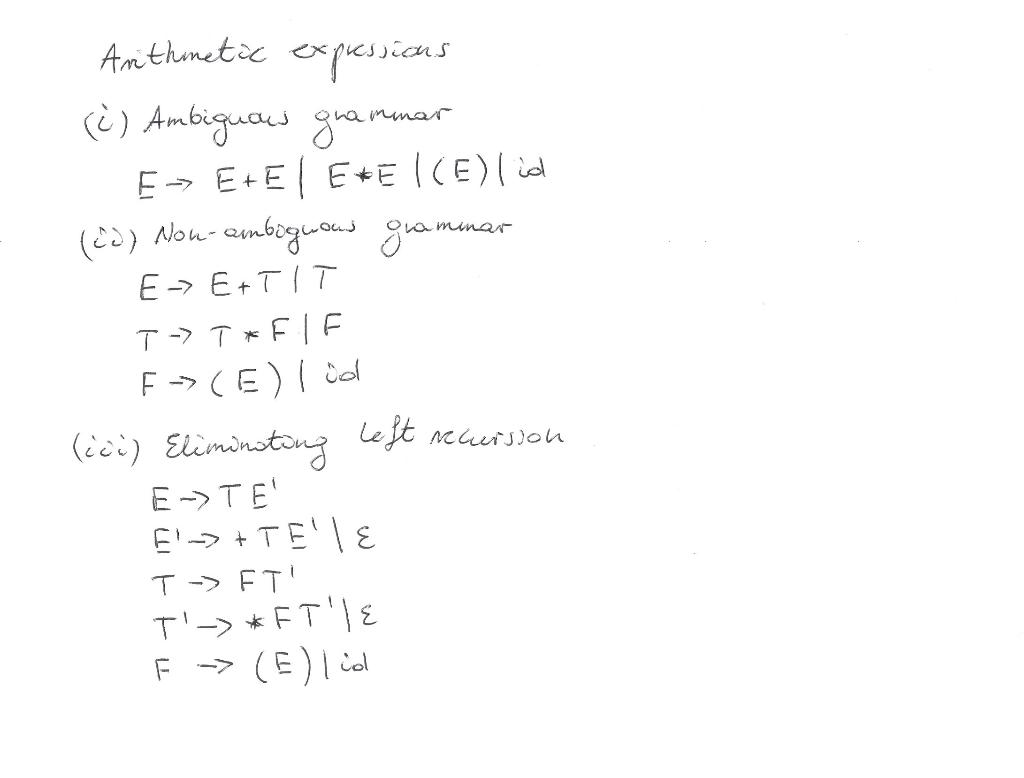 Arithmetic expressions
(i) Ambiguous grammar
E -> E+E | E*E | (E) | id
(ii) Non-ambiguous grammar
E -> E+T | T
T -> T * F | F
F -> (E) | id
(iii) Eliminating left recursion
E -> TE'
E' -> +TE' | ε
T -> FT'
T' -> *FT' | ε
F -> (E) | id